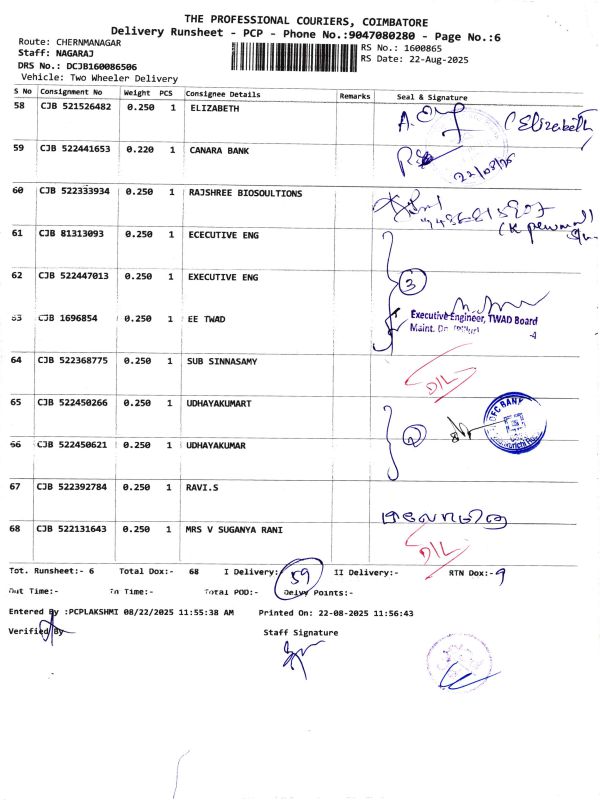 THE PROFESSIONAL COURIERS, COIMBATORE
Delivery Runsheet - PCP - Phone No.:9047080280 - Page No.:6
Route: CHERNMANAGAR
Staff: NAGARAJ
DRS No.: DCJB160086506
Vehicle: Two Wheeler Delivery
RS No.: 1600865
RS Date: 22-Aug-2025
S No Consignment No Weight PCS Consignee Details Remarks Seal & Signature
58 CJB 521526482 0.250 1 ELIZABETH Elizabeth
59 CJB 522441653 0.220 1 CANARA BANK
22/08/25
60 CJB 522333934 0.250 1 RAJSHREE BIOSOULTIONS
61 CJB 81313093 0.250 1 ECECUTIVE ENG
62 CJB 522447013 0.250 1 EXECUTIVE ENG 3
63 CJB 1696854 0.250 1 EE TWAD Executive Engineer, TWAD Board
Maint. Dn.
64 CJB 522368775 0.250 1 SUB SINNASAMY D/L
65 CJB 522450266 0.250 1 UDHAYAKUMART 2
66 CJB 522450621 0.250 1 UDHAYAKUMAR
67 CJB 522392784 0.250 1 RAVI.S
68 CJB 522131643 0.250 1 MRS V SUGANYA RANI D/L
Tot. Runsheet:- 6 Total Dox:- 68 I Delivery: 59 II Delivery:- RTN Dox:- 9
Out Time:- In Time:- Total POD:- Delvy Points:-
Entered By :PCPLAKSHMI 08/22/2025 11:55:38 AM Printed On: 22-08-2025 11:56:43
Verified By Staff Signature